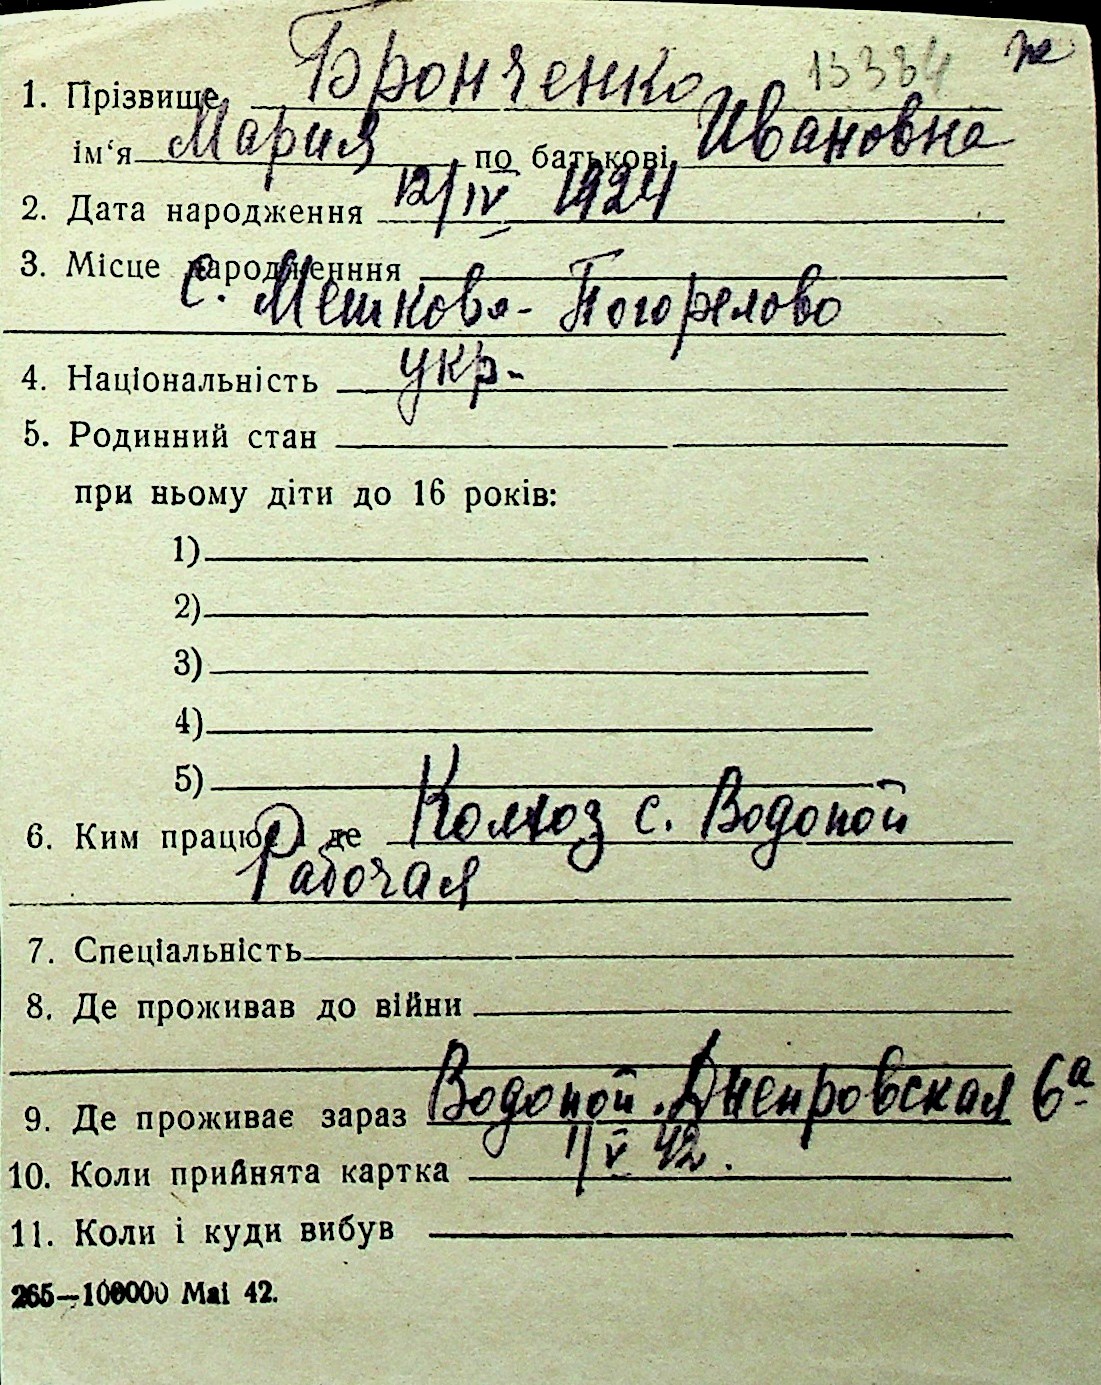 1. Прізвище Бронченко 15384 ж
ім‘я Мария по батькові Ивановна
2. Дата народження 12/IV 1924
3. Місце народженння
с. Мешково-Погорелово
4. Національність укр-
5. Родинний стан
при ньому діти до 16 років:
1)
2)
3)
4)
5)
6. Ким працює і де Колхоз с. Водопой
Рабочая
7. Спеціальність
8. Де проживав до війни
9. Де проживає зараз Водопой. Днепровская 6а
10. Коли прийнята картка 11/V 42.
11. Коли і куди вибув
265—100000 Mai 42.